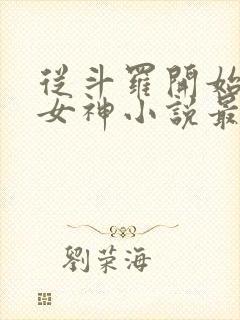 從斗羅開始
女神小說最
劉荣海